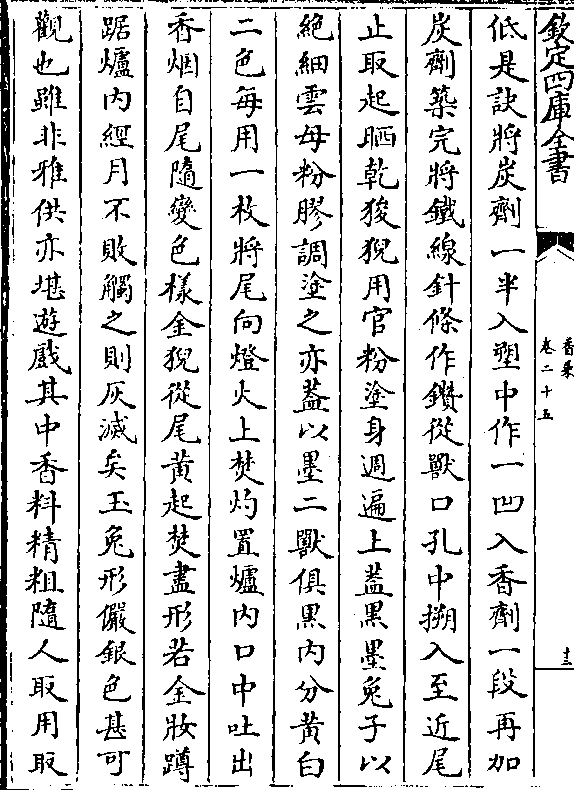 欽定四庫全書
香乘
卷二十五
十三
低是訣將炭劑一半入塑中作一凹入香劑一段再加
炭劑築完將鐵線針條作鑽從獸口孔中搠入至近尾
止取起晒乾狻猊用官粉塗身週遍上葢黒墨兔子以
絶細雲母粉膠調塗之亦葢以墨二獸俱黒内分黄白
二色每用一枚將尾向燈火上焚灼置爐内口中吐出
香烟自尾隨變色様金猊從尾黄起焚盡形若金妝蹲
踞爐内經月不敗觸之則灰滅矣玉兔形儼銀色甚可
觀也雖非雅供亦堪遊戲其中香料精粗隨人取用取